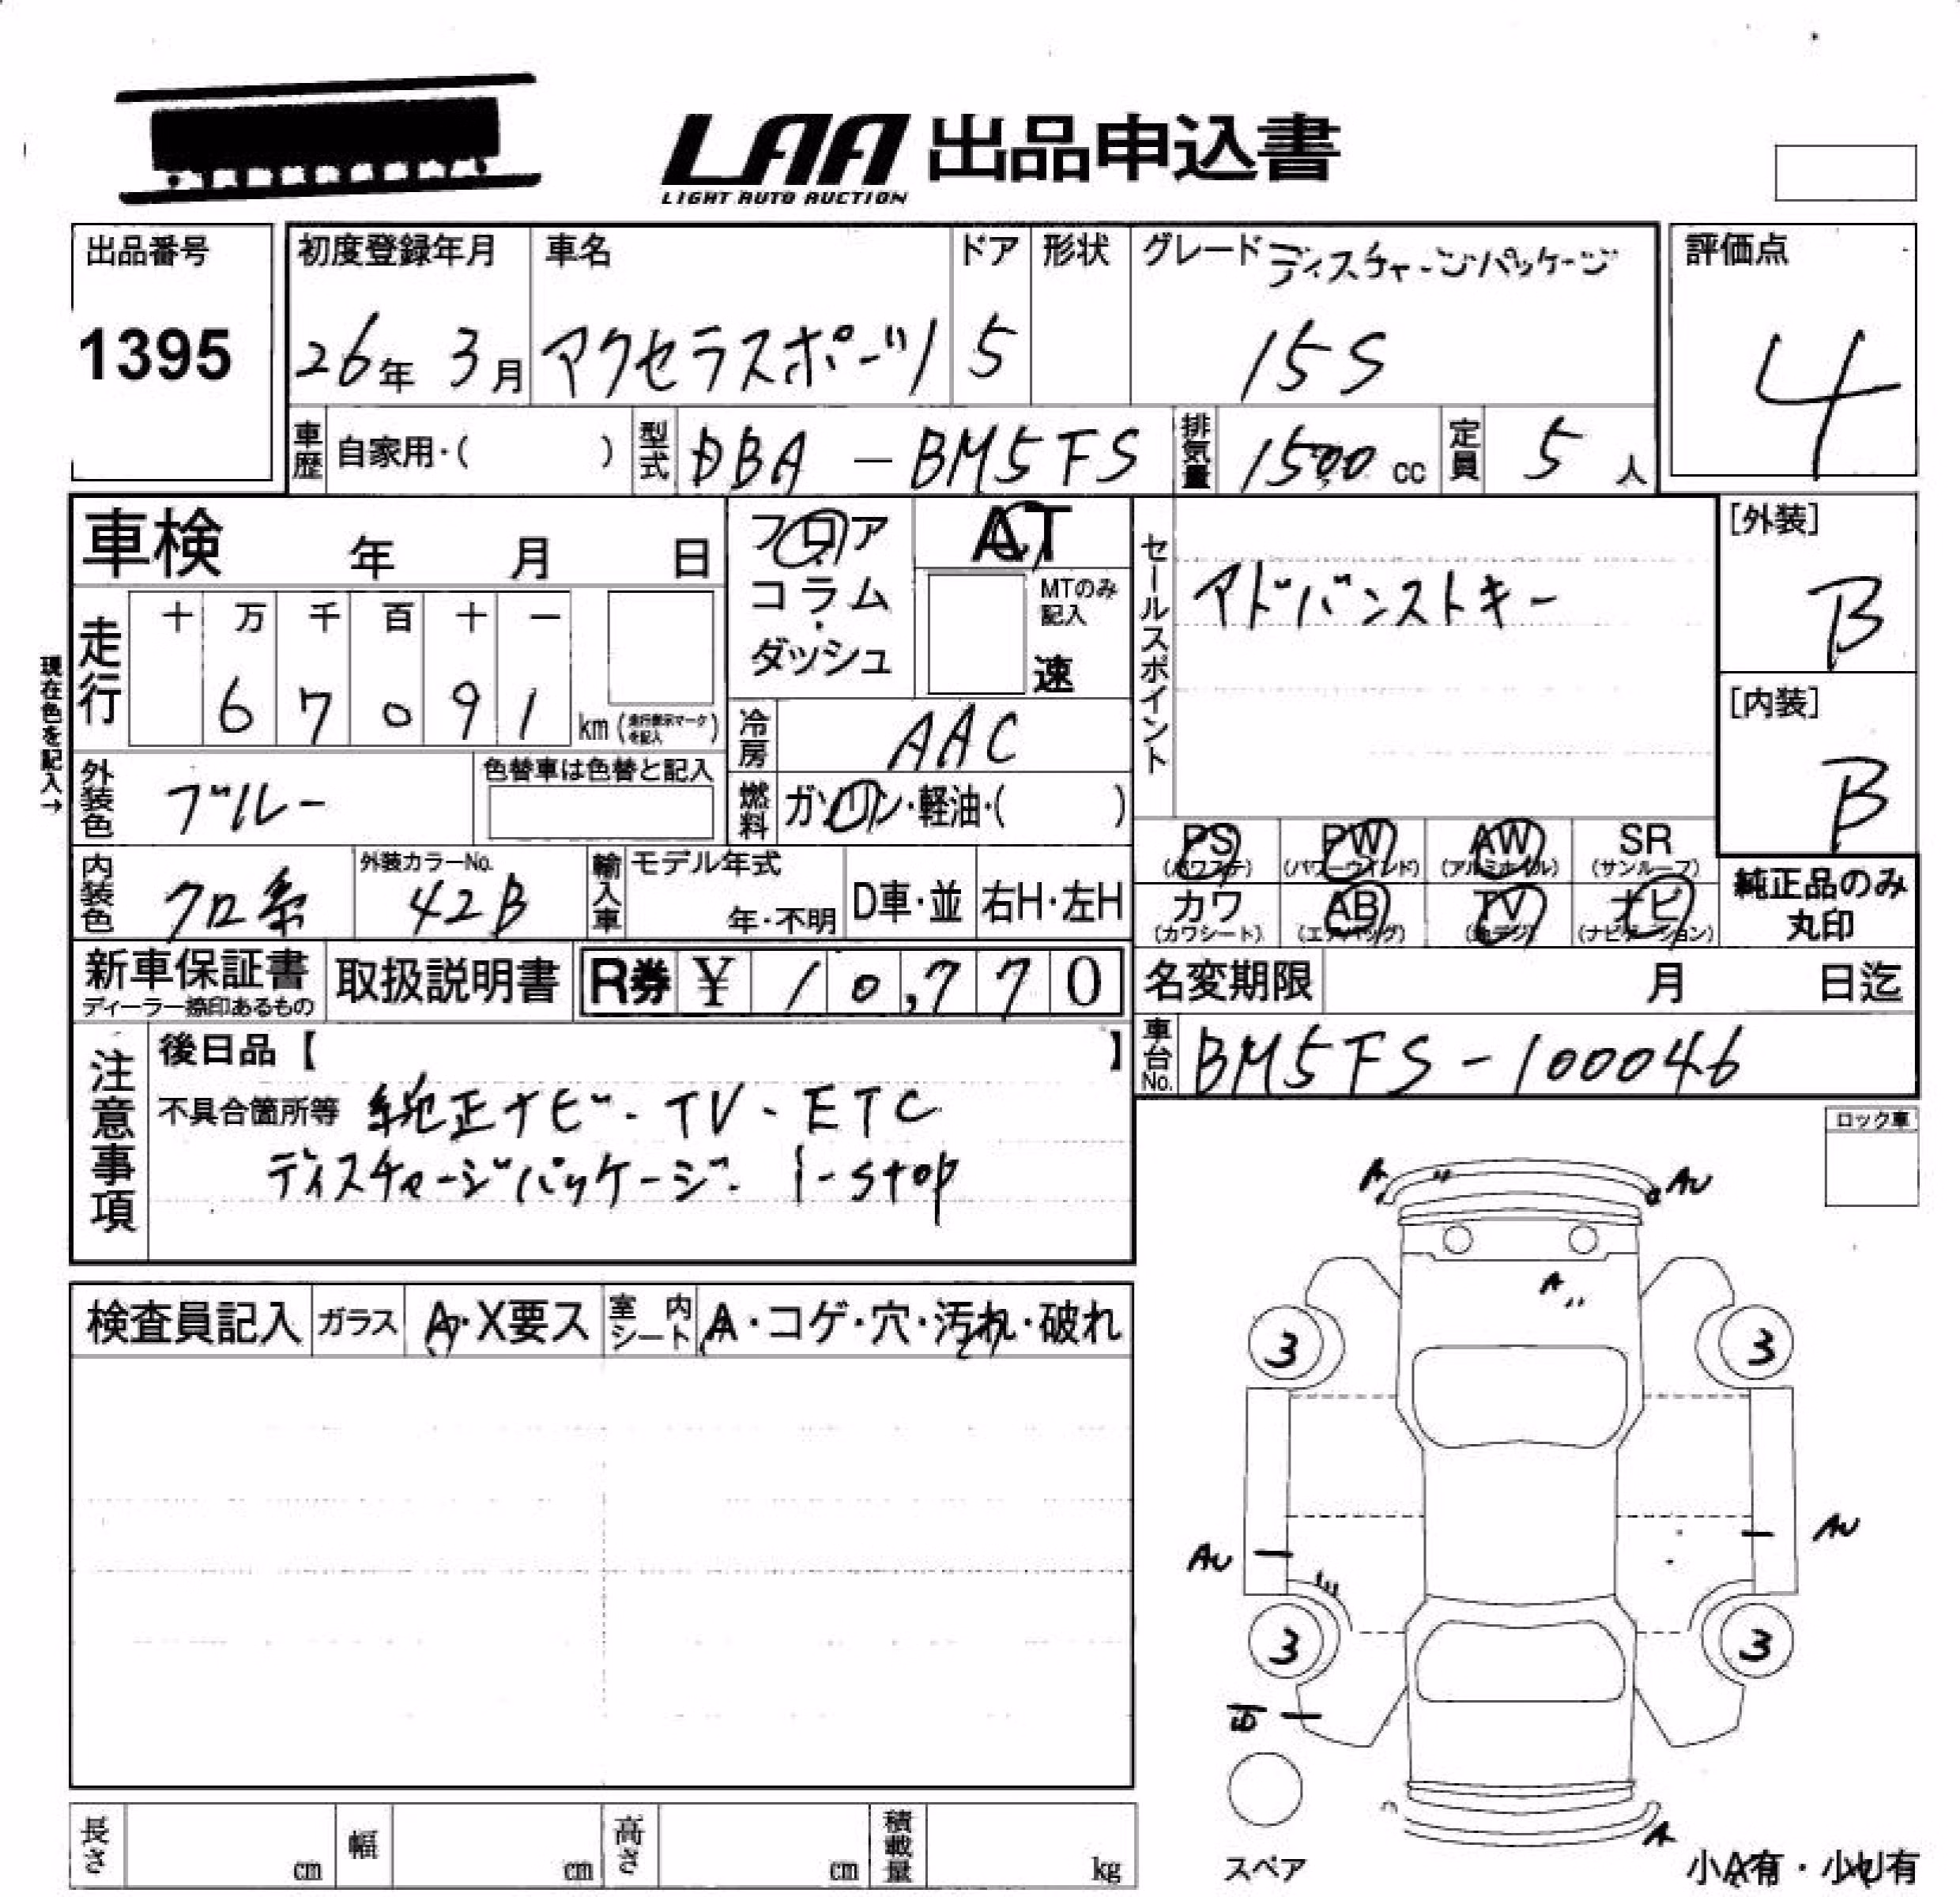 LAA 出品申込書
LIGHT AUTO AUCTION
出品番号
1395
初度登録年月
26年 3月
車名
アクセラスポーツ
ドア
5
形状
グレード ディスチャージパッケージ
15S
評価点
4
車歴 自家用・( )
型式 DBA - BM5FS
排気量 1500 cc
定員 5 人
車検 年 月 日
フロア
コラム
・
ダッシュ
AT
MTのみ
記入
速
セールスポイント
アドバンストキー
[外装]
B
[内装]
B
現在色を記入→
走行
十 万 千 百 十 一
6 7 0 9 1
km (走行表示マークを記入)
冷房 AAC
燃料 ガソリン・軽油・( )
外装色 ブルー
色替車は色替と記入
PS (パワステ)
PW (パワーウインド)
AW (アルミホイル)
SR (サンルーフ)
カワ (カワシート)
AB (エアバッグ)
TV (地デジ)
ナビ (ナビゲーション)
純正品のみ
丸印
内装色 クロ系
外装カラーNo.
42B
輸入車
モデル年式
年・不明
D車・並
右H・左H
新車保証書
ディーラー捺印あるもの
取扱説明書
R券 ¥ 10,770
名変期限 月 日迄
車台No. BM5FS-100046
注意事項
後日品【 】
不具合箇所等 純正ナビ・TV・ETC
ディスチャージパッケージ・i-stop
ロック車
A AU
A
3 3
AU AU
3 3
A
スペア
小A有・小U有
検査員記入
ガラス
A・X要ス
室内シート
A・コゲ・穴・汚れ・破れ
長さ cm
幅 cm
高さ cm
積載量 kg